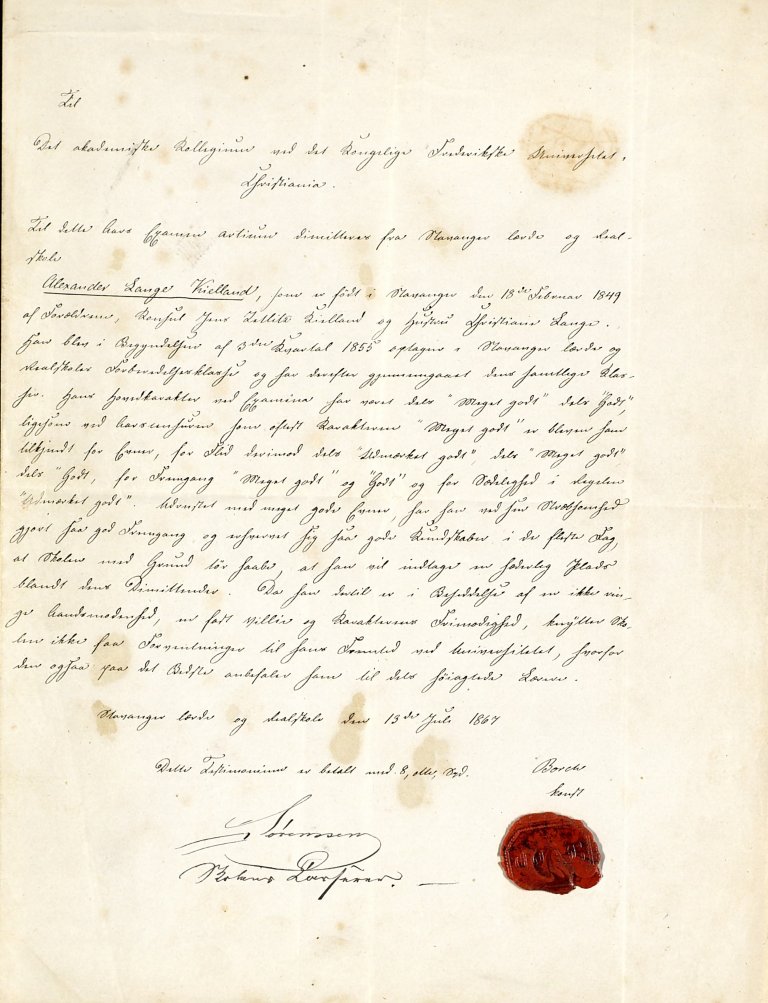 Til
Det akademiske Kollegium ved det kongelige Frederikske Universitet,
Christiania.
Til dette Aars Examen artium dimitteres fra Stavanger lærde og Real-
skole
Alexander Lange Kielland, som er født i Stavanger den 18de Februar 1849
af Forældrene, Konsul Jens Zetlitz Kielland og Hustru Christiane Lange.
Han blev i Begyndelsen af 3die Kvartal 1855 optagen i Stavanger lærde og
Realskoles Forberedelsesklasse og har derefter gjennemgaaet dens samtlige Klas-
ser. Hans Hovedkarakter ved Examina har været dels "Meget godt" dels "Godt",
ligesom ved Aarscensuren som oftest Karakteren "Meget godt" er bleven ham
tilkjendt for Evner, for Flid derimod dels "Udmærket godt" dels "Meget godt"
dels "Godt, for Fremgang "Meget godt" og "Godt" og for Sædelighed i Regelen
"Udmærket godt". Udrustet med meget gode Evner, har han ved sin Stræbsomhed
gjort saa god Fremgang og erhvervet sig saa gode Kundskaber i de fleste Fag,
at Skolen med Grund tør haabe, at han vil indtage en hæderlig Plads
blandt dens Dimittender. Da han dertil er i Besiddelse af en ikke rin-
ge Aandsmodenhed, en fast Villie og Karakterens Frimodighed, knytter Sko-
len ikke faa Forventninger til hans Fremtid ved Universitetet, hvorfor
den ogsaa paa det Bedste anbefaler ham til dets høiagtede Lærere.
Stavanger lærde og Realskole den 13de Juli 1867
Dette Testimonium er betalt med 8, otte, Spd.
Borch
konst
Sørenssen
Skolens Kasserer.